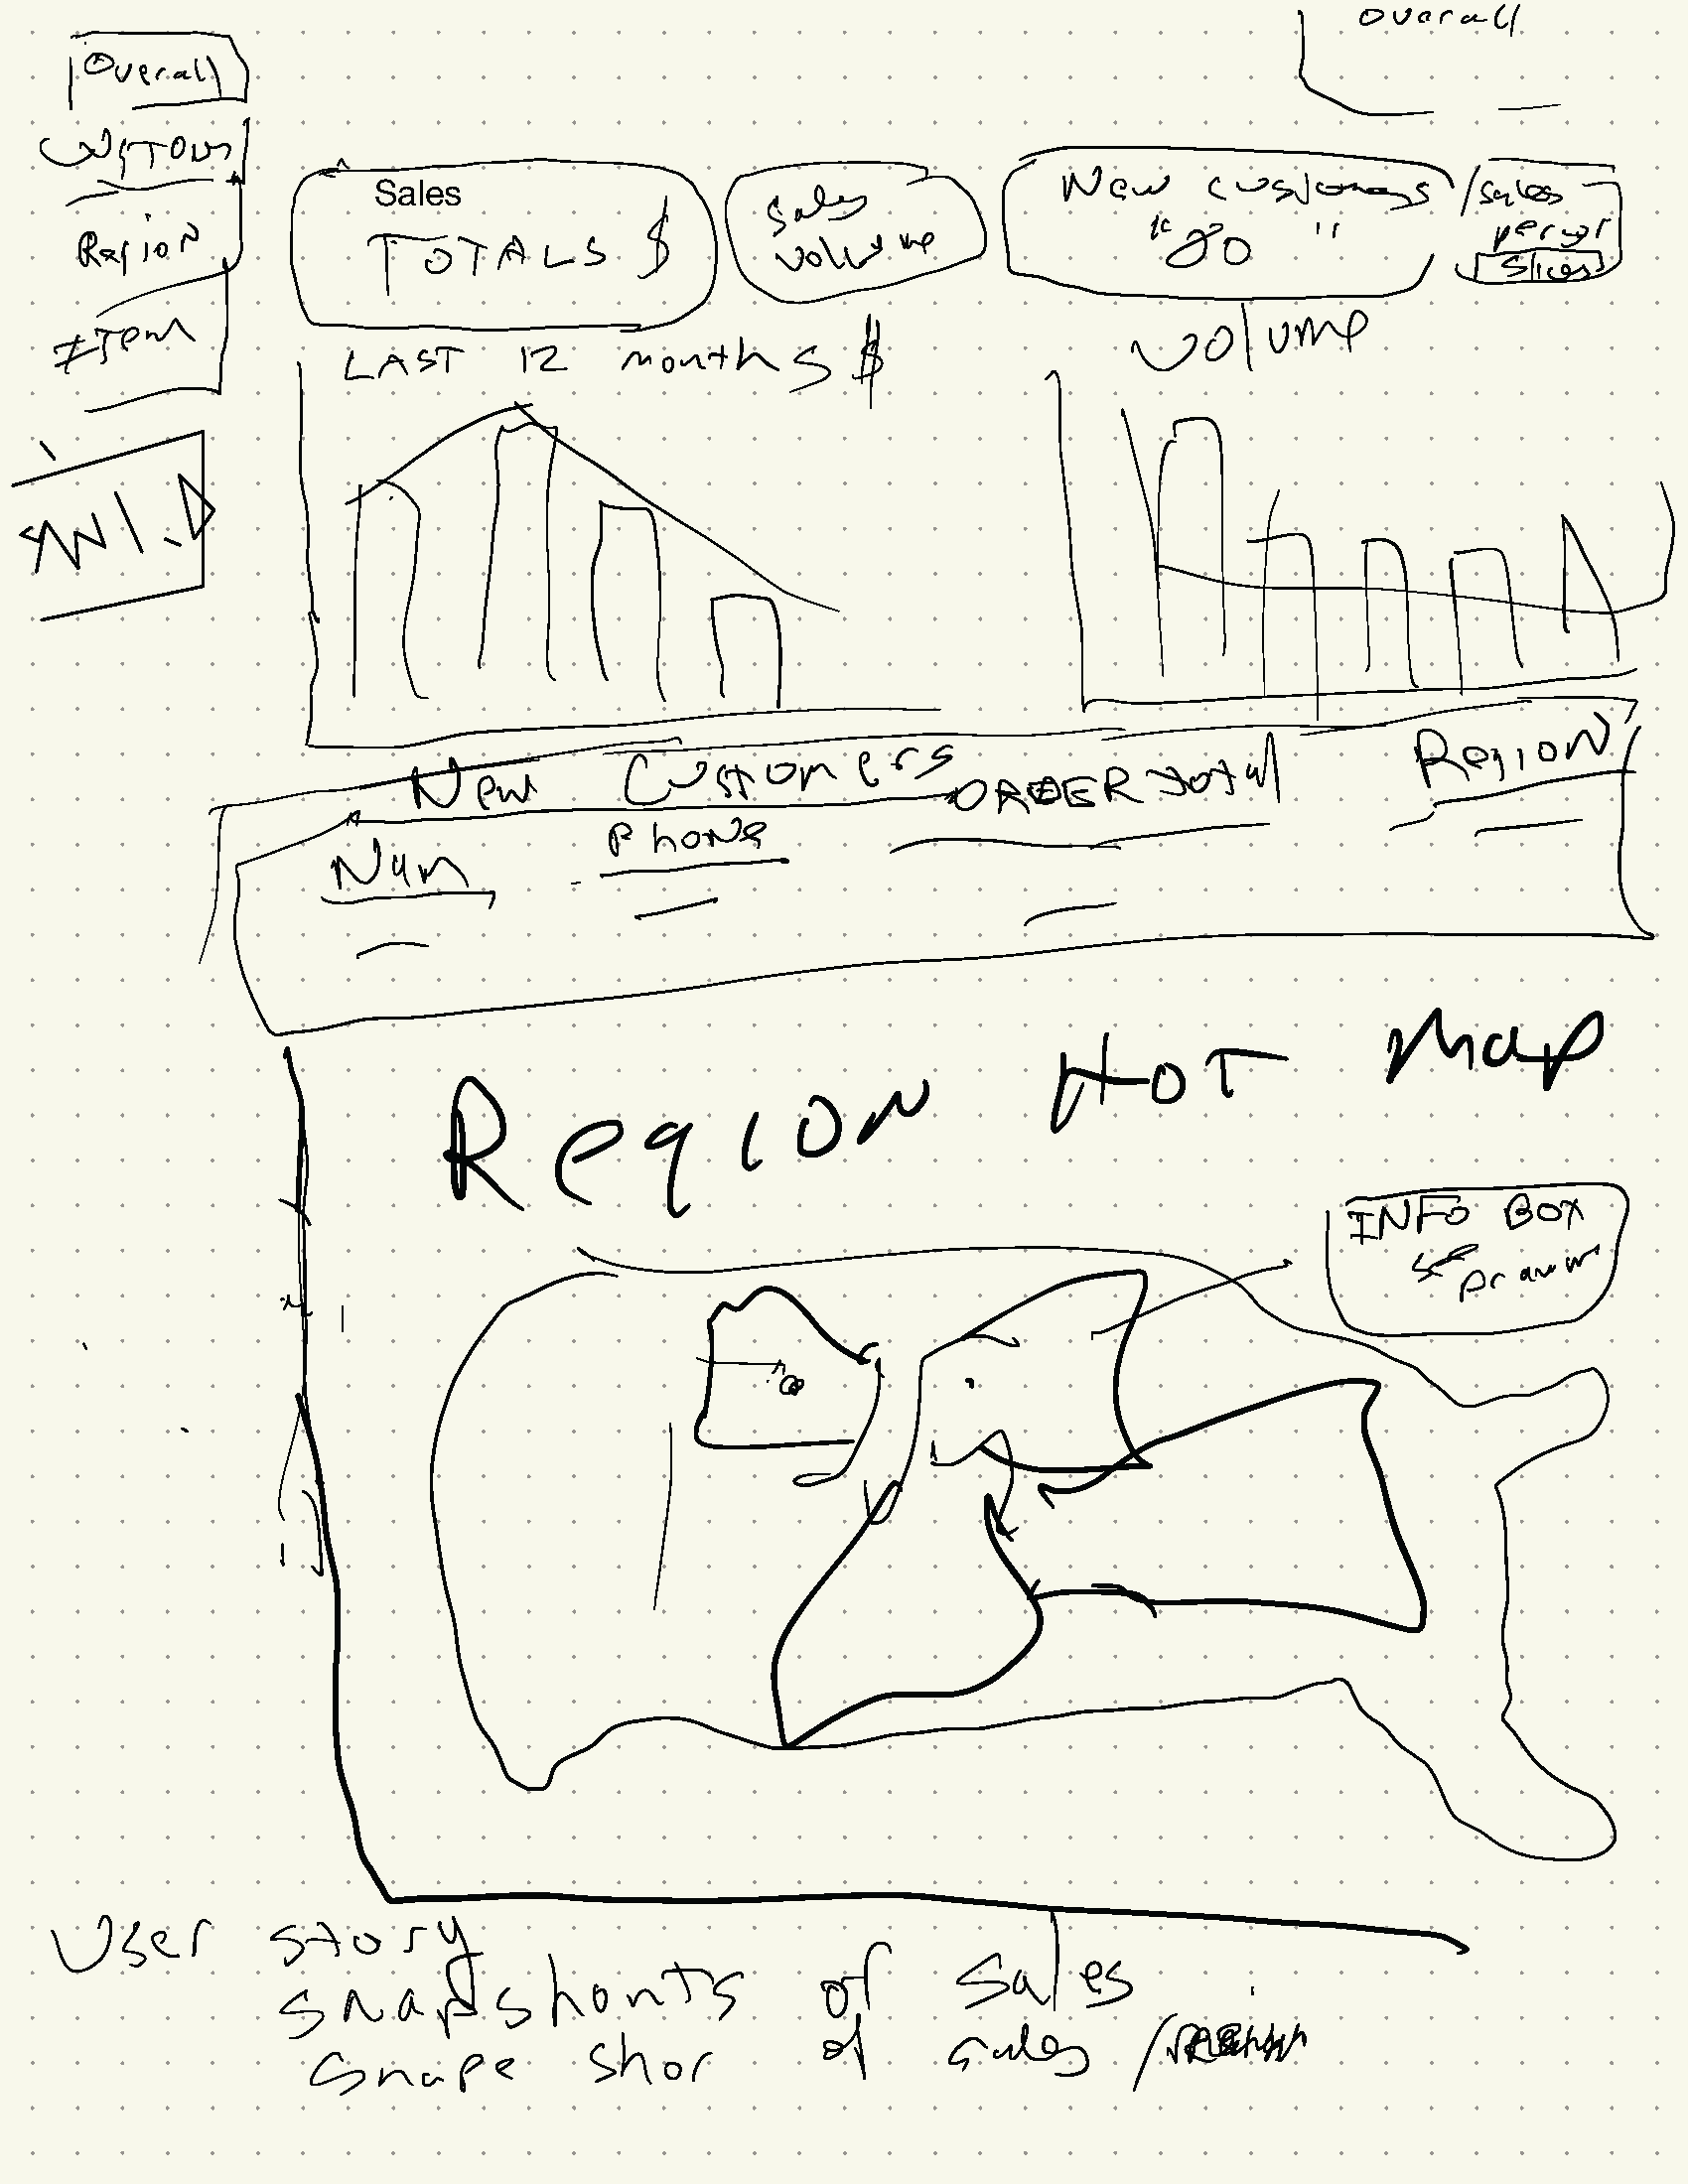 Overall
overall
Region
Item
Sales
TOTALS $
Sales
Volume
New customers
"80"
/Sales
person
Slices
LAST 12 months $
Volume
New Customers
ORDER total
Region
Nam
Phone
Region Hot Map
INFO BOX
User story
snapshonts of sales
snape shor of sales /